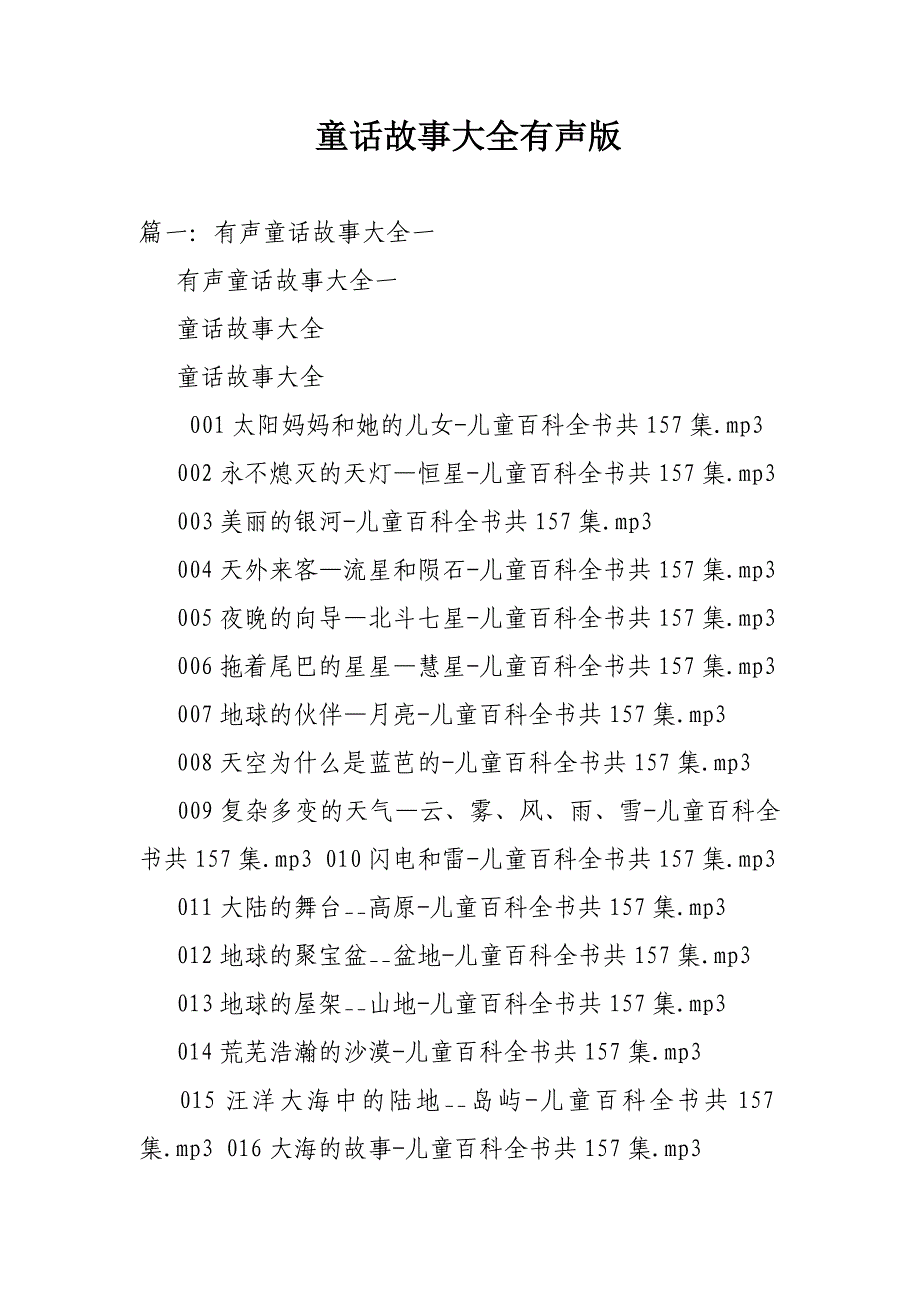 童话故事大全有声版
篇一：有声童话故事大全一
有声童话故事大全一
童话故事大全
童话故事大全
001 太阳妈妈和她的儿女-儿童百科全书共 157 集.mp3
002 永不熄灭的天灯—恒星-儿童百科全书共 157 集.mp3
003 美丽的银河-儿童百科全书共 157 集.mp3
004 天外来客—流星和陨石-儿童百科全书共 157 集.mp3
005 夜晚的向导—北斗七星-儿童百科全书共 157 集.mp3
006 拖着尾巴的星星—慧星-儿童百科全书共 157 集.mp3
007 地球的伙伴—月亮-儿童百科全书共 157 集.mp3
008 天空为什么是蓝芭的-儿童百科全书共 157 集.mp3
009 复杂多变的天气—云、雾、风、雨、雪-儿童百科全
书共 157 集.mp3 010 闪电和雷-儿童百科全书共 157 集.mp3
011 大陆的舞台__高原-儿童百科全书共 157 集.mp3
012 地球的聚宝盆__盆地-儿童百科全书共 157 集.mp3
013 地球的屋架__山地-儿童百科全书共 157 集.mp3
014 荒芜浩瀚的沙漠-儿童百科全书共 157 集.mp3
015 汪洋大海中的陆地__岛屿-儿童百科全书共 157
集.mp3 016 大海的故事-儿童百科全书共 157 集.mp3